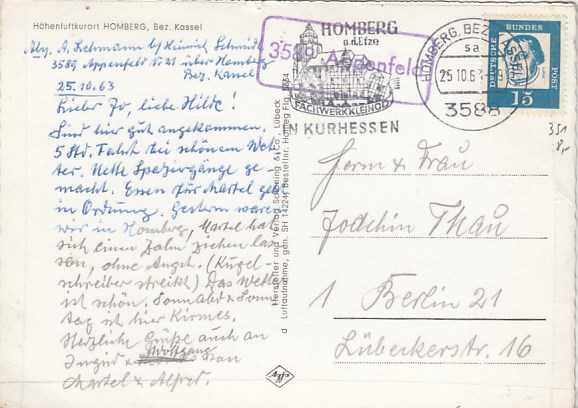 Höhenluftkurort HOMBERG, Bez. Kassel
Abs. A. Lehmann b/Heinrich Schmidt
3589 Appenfeld N 21 über Homberg
Bez. Kassel
25.10.63
Lieber Jo, liebe Hilde!
Sind hier gut angekommen.
5 Std. Fahrt bei schönem Wet-
ter. Nette Spaziergänge ge-
macht. Essen für Martel geht
in Ordnung. Gestern waren
wir in Homberg, Martel hat
sich einen Zahn ziehen las-
sen, ohne Angst. (Kugel-
schreiber streikt) Das Wetter
ist schön. Sonnabd + Sonn-
tag ist hier Kirmes.
Herzliche Grüße auch an
Ingrid + Wolfgang von
Martel & Alfred.
Hersteller und Verlag Schöning & Co., Lübeck
d Luftaufnahme, gen. SH 14224, Bestellnr. Homeg Flg. 5034
Agfa
3589 Appenfeld
HOMBERG
a.d. Efze
FACHWERKKLEINOD
IN KURHESSEN
HOMBERG, BEZ. KASSEL
sa
25.10.63
3588
DEUTSCHE BUNDES POST
15
351
8,-
Herrn & Frau
Joachim Thau
1 Berlin 21
Lübeckerstr. 16